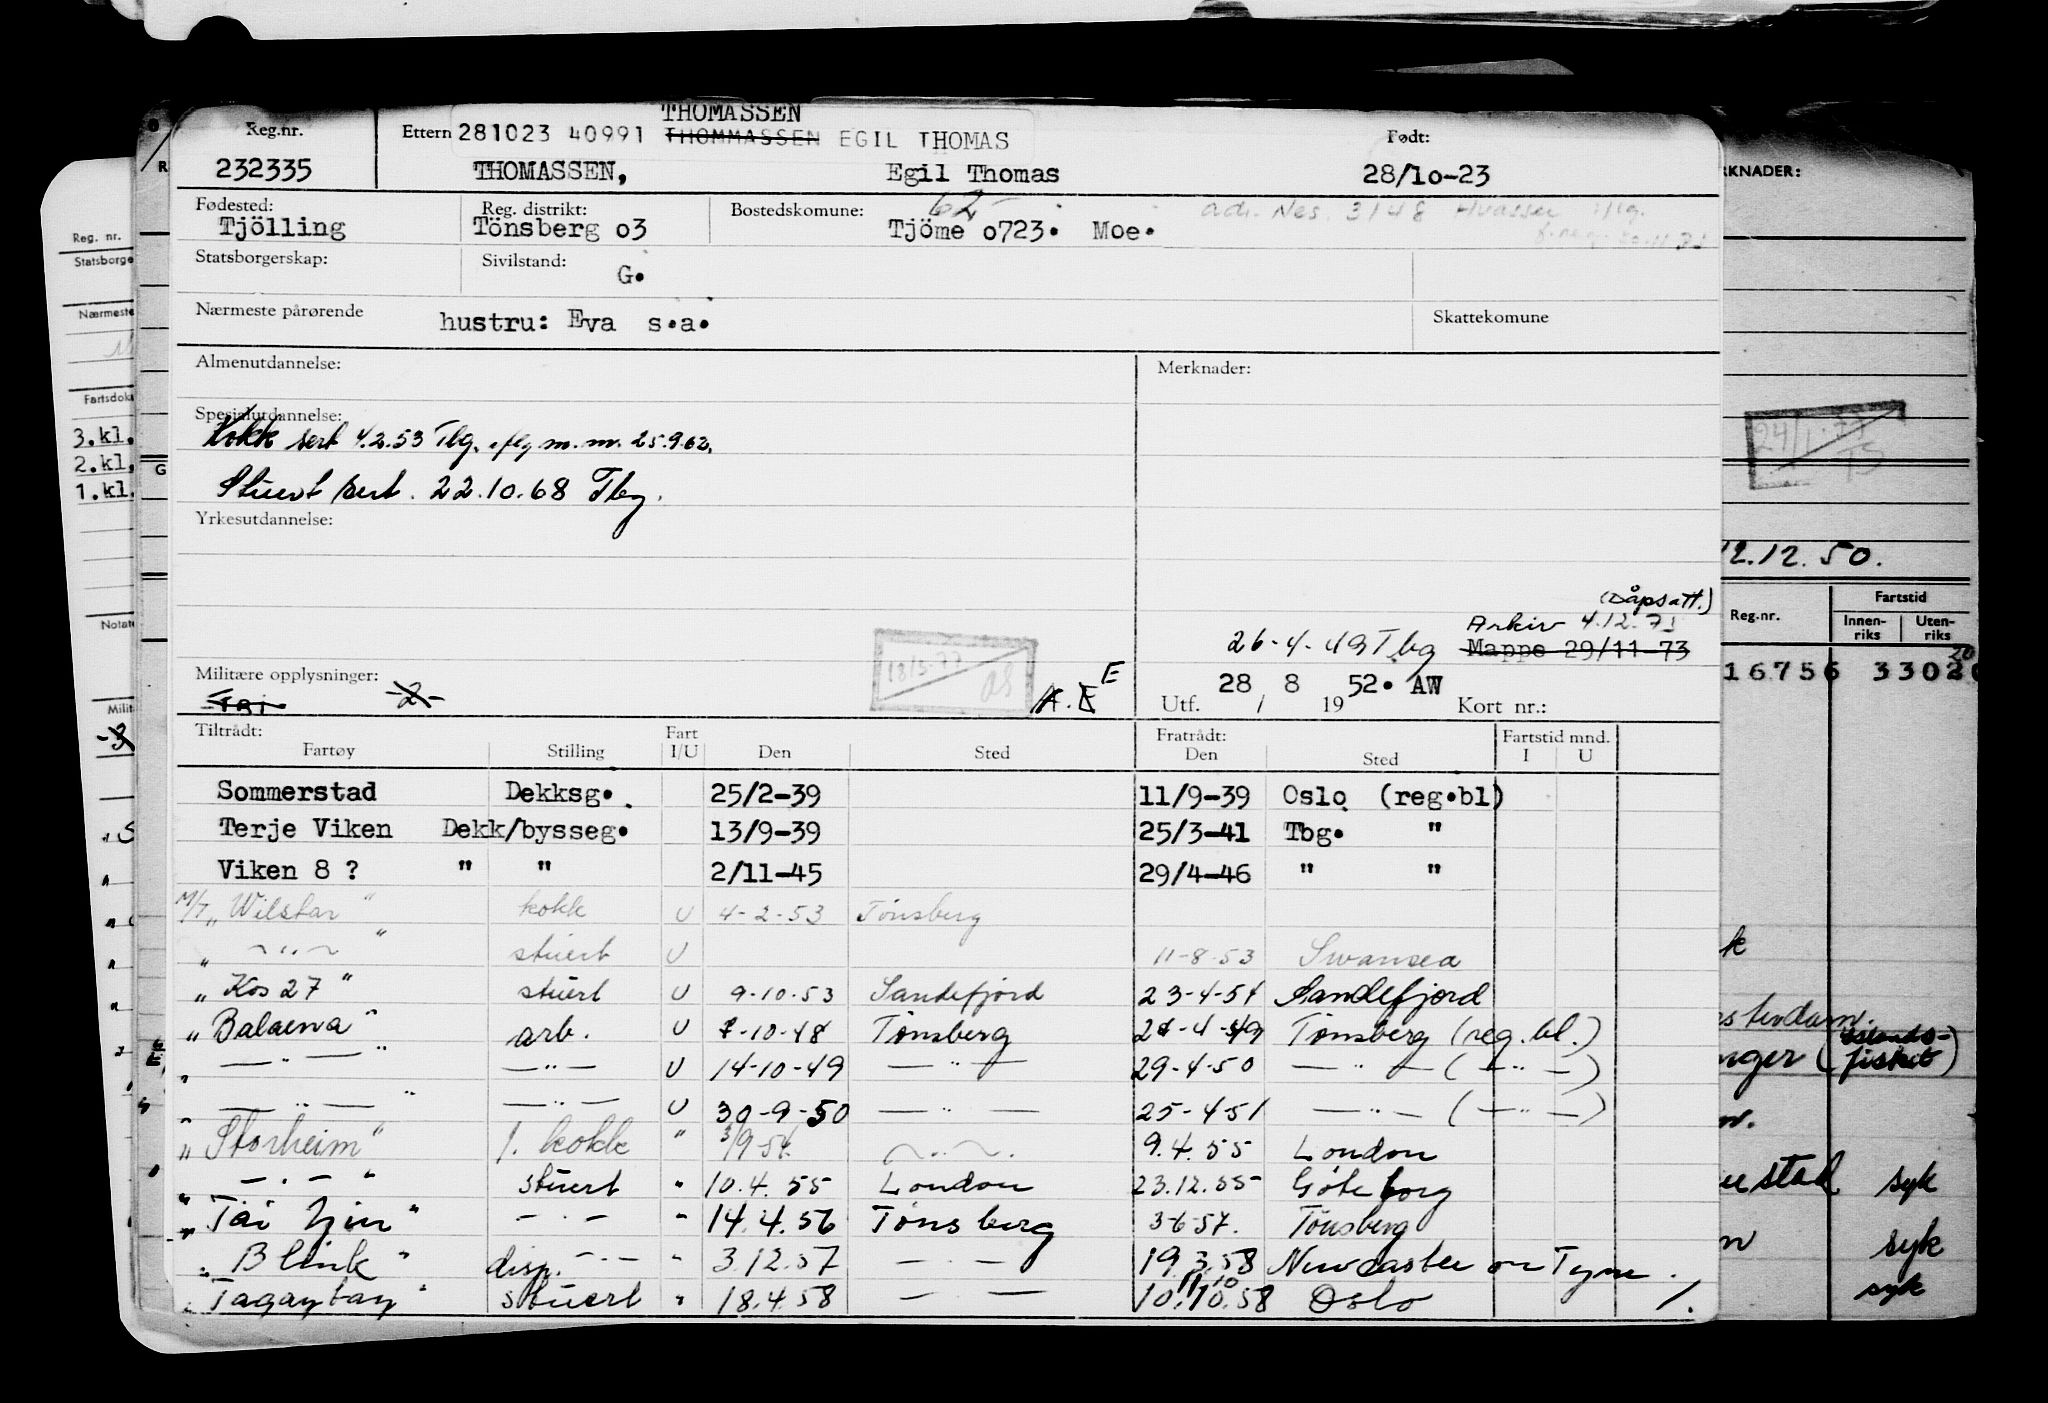 THOMASSEN
Reg.nr. Ettern 281023 40991 THOMMASSEN EGIL THOMAS Født:
232335 THOMASSEN, Egil Thomas 28/10-23
Fødested: Reg. distrikt: Bostedskomune: 62
Tjölling Tönsberg o3 Tjöme o723. Moe. adr. Nes. 3148 Hvasser
Statsborgerskap: Sivilstand: G.
Nærmeste pårørende hustru: Eva s.a. Skattekomune
Almenutdannelse: Merknader:
Spesialutdannelse:
Kokk sert 4.2.53 Tbg. m.m. 25.9.62.
Stuert sert. 22.10.68 Tbg.
Yrkesutdannelse:
(Dåpsatt.)
Arkiv 4.12.73
26-4-49 Tbg Mappe 29/11-73
Militære opplysninger: -2- 18/5-77 E
28 8 52. AW
Utf. / 19 Kort nr.:
Tiltrådt: Fart Fratrådt: Fartstid mnd.
Fartøy Stilling I/U Den Sted Den Sted I U
Sommerstad Dekksg. 25/2-39 11/9-39 Oslo (reg.bl)
Terje Viken Dekk/bysseg. 13/9-39 25/3-41 Tbg. "
Viken 8 ? " " 2/11-45 29/4-46 " "
M/T „Wilstar" kokk U 4-2-53 Tönsberg
„ ~"~ " stuert U 11-8-53 Swansea
„Kos 27" stuert U 9-10-53 Sandefjord 23-4-54 Sandefjord
„Balaena" arb. U 7-10-48 Tønsberg 21-4-49 Tønsberg (reg. bl.)
„ —"— " —"— U 14-10-49 —"— 29-4-50 —"— (—"—)
„ —"— " —"— U 30-9-50 —"— 25-4-51 —"— (—"—)
„Storheim" 1. kokk " 3/9-54 ~"~. 9.4.55 London
„ —"— " stuert " 10.4.55 London 23.12.55 Göteborg
„Tai Yin" —"— " 14.4.56 Tönsberg 3-6-57. Tönsberg
„Blink" disp. —"— " 3.12.57 —"— 19.3.58 Newcastle on Tyne.
„Tagaytay" stuert " 18.4.58 —"— 10.10.58 Oslo 1.
Reg. nr.
Statsborge
Nærmeste
Fartsdok
3.kl.
2.kl.
1.kl.
Notate
Milit
-3
R
G
RKNADER:
24/1-77
12.12.50.
Reg.nr. Fartstid
Innen-riks Uten-riks
16756 3302
fisket)
syk
syk
syk